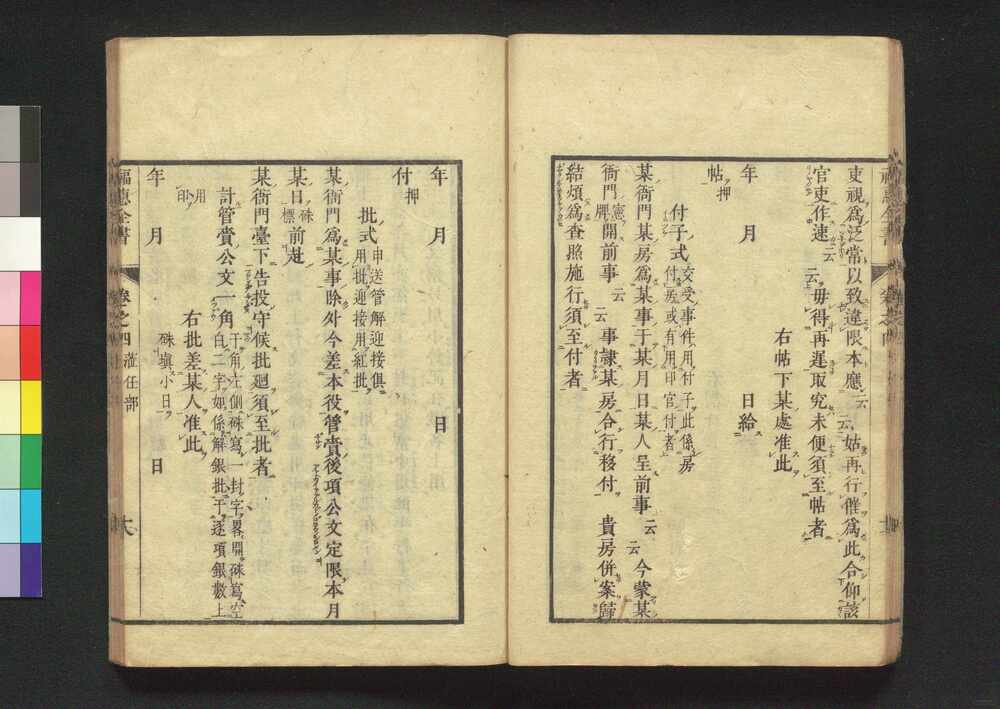 東視爲泛常以致違限本應云云姑再行催爲此合仰該
官吏作速云云毋得再遲取究未便須至帖者
右帖下某處准此
年 月 日給
帖押
付子式交受事件用付子此係房付房或有用印官付者
某衙門某房爲某事于某月日某人呈前事云云今蒙某
衙門憲牌開前事云云事隷某房合行移付 貴房併案歸
結煩爲查照施行須至付者
年 月 日
付押
批式申送管解迎接俱用批迎接用紅批
某衙門爲某事除外今差本役管賫後項公文定限本月
某日硃標前赴
某衙門臺下告投守候批廻須至批者
計管賫公文一角于角左側硃寫一封字畧開硃寫空白二字如係解銀批于逐項銀數上
用印 右批差某人准此
年 月 硃塡小日 日
福惠全書 卷之四 涖任部